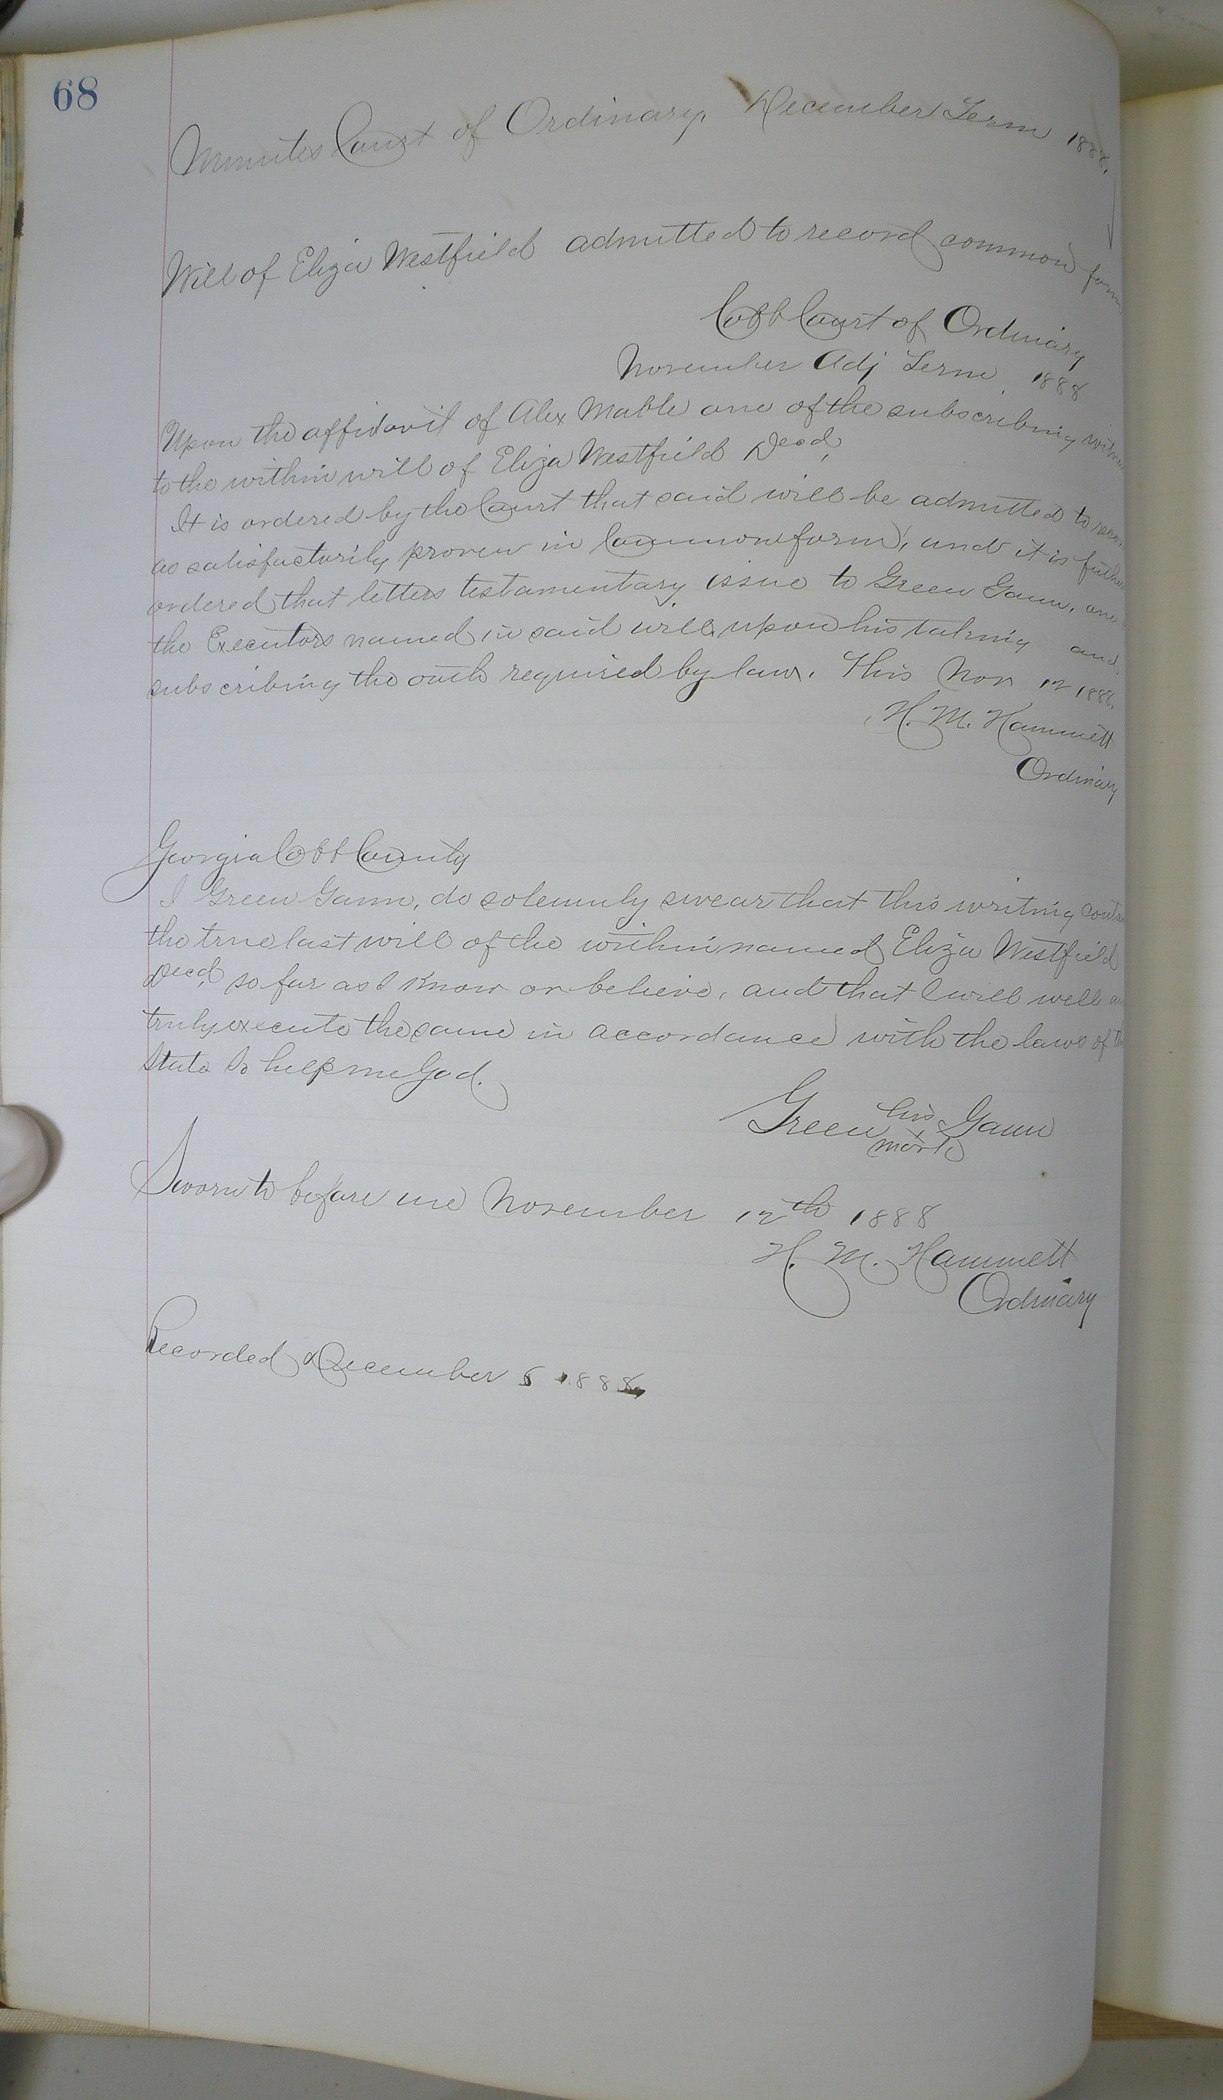 68
Minutes Court of Ordinary, December Term 1888.
Will of Eliza Westfield admitted to record common form
Cobb Court of Ordinary
November Adj Term 1888
Upon the affidavit of Alex Mable one of the subscribing
to the within will of Eliza Westfield Decd,
It is ordered by the Court that said will be admitted to
as satisfactorily proven in Common form, and it is futher
ordered that letters testamentary issue to Green Gann, one
the Executors named in said will, upon his taking and
subscribing the oath required by law. This Nov 12 1888.
H. M. Hammett
Ordinary
Georgia Cobb County
I Green Gann, do solemnly swear that this writing
the true last will of the within named Eliza Westfield
Decd, so far as I know or believe, and that I will well
truly execute the same in accordance with the laws of
State So help me God.
Green his Gann
x
mark
Sworn to before me November 12th 1888
H. M. Hammett
Ordinary
Recorded December 5 1888,